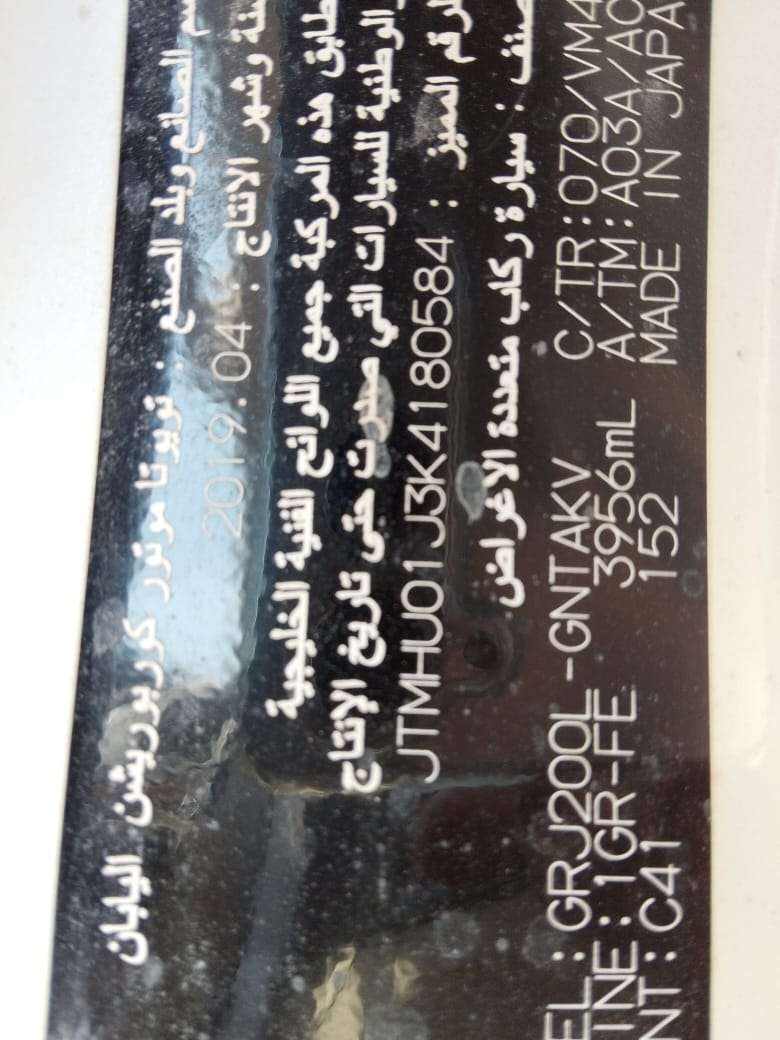 الصانع وبلد الصنع : تويوتا موتور كوربوريشن اليابان
وشهر الانتاج : 2019.04
هذه المركبة جميع اللوائح الفنية الخليجية
للسيارات التي صدرت حتى تاريخ الإنتاج
المميز : JTMHU01J3K4180584
: سيارة ركاب متعددة الاغراض
EL : GRJ200L-GNTAKV C/TR : 070/VM4
INE : 1GR-FE 3956mL A/TM : A03A/A0
NT : C41 152 MADE IN JAPA